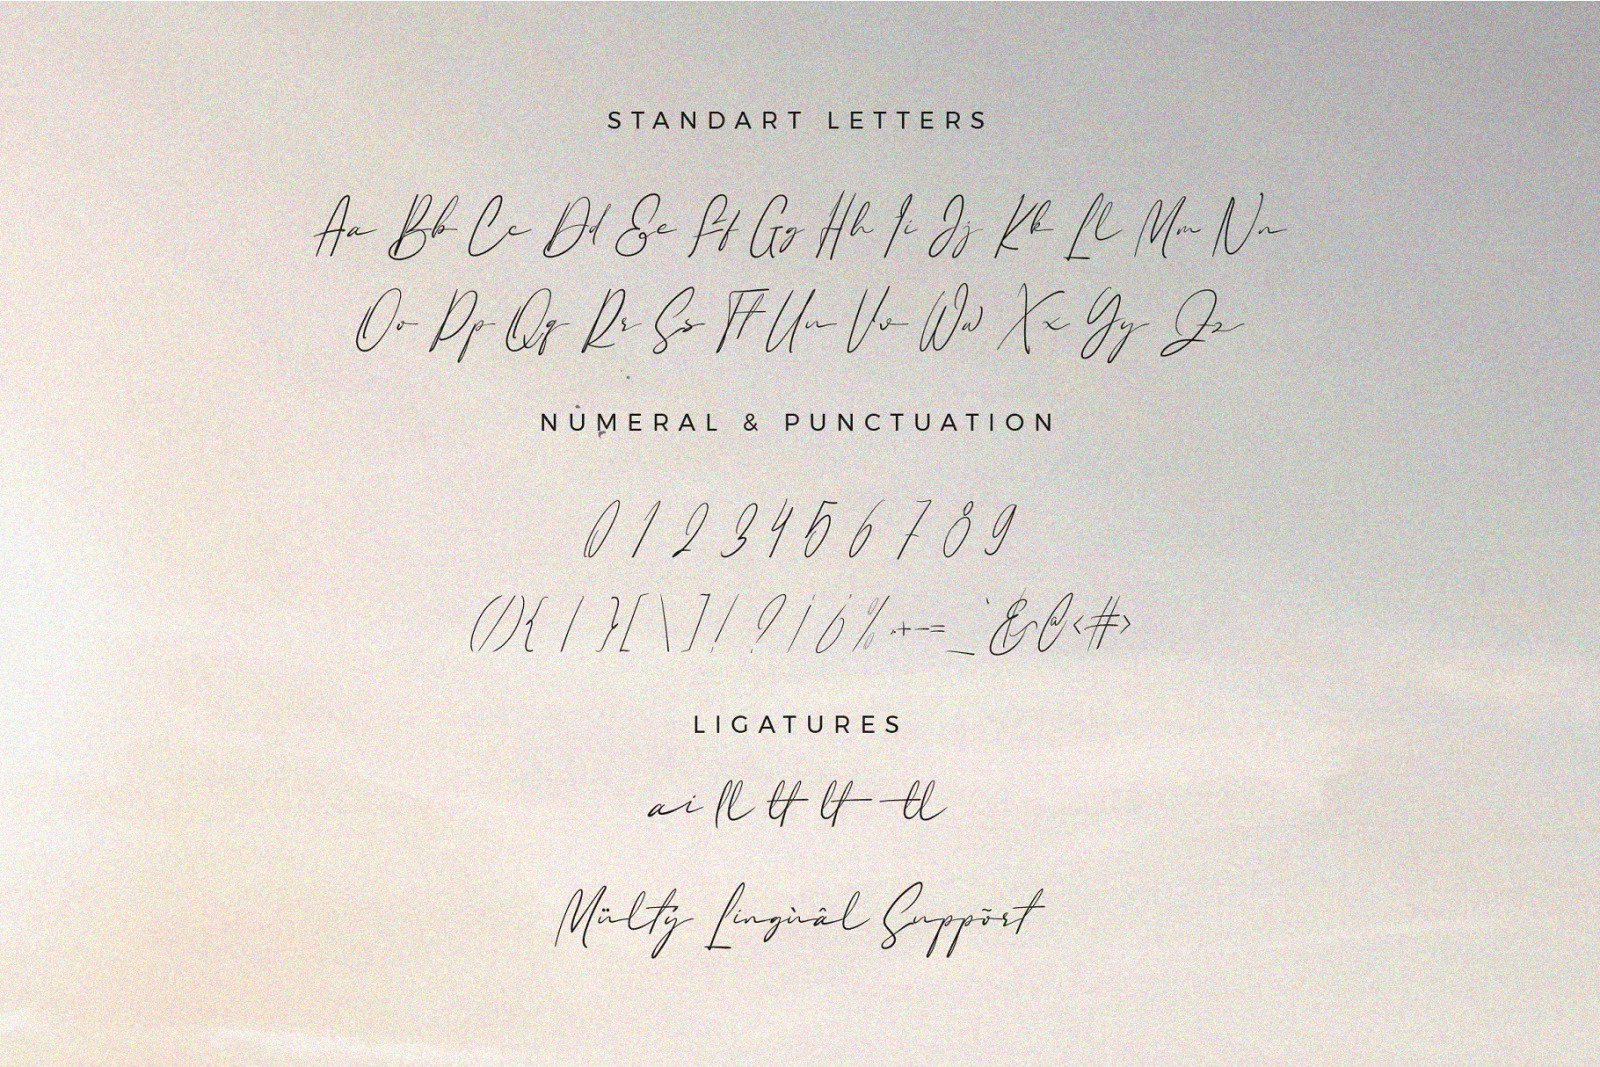 STANDART LETTERS
Aa Bb Cc Dd Ee Ff Gg Hh Ii Jj Kk Ll Mm Nn
Oo Pp Qq Rr Ss Tt Uu Vv Ww Xx Yy Zz
NUMERAL & PUNCTUATION
0 1 2 3 4 5 6 7 8 9
(/){ | }[ \ ]! ? ¡ ¿ % .+-=_ ` & @ <#>
LIGATURES
ai ll tt lt tl
Mülty Lingùâl Suppõrt